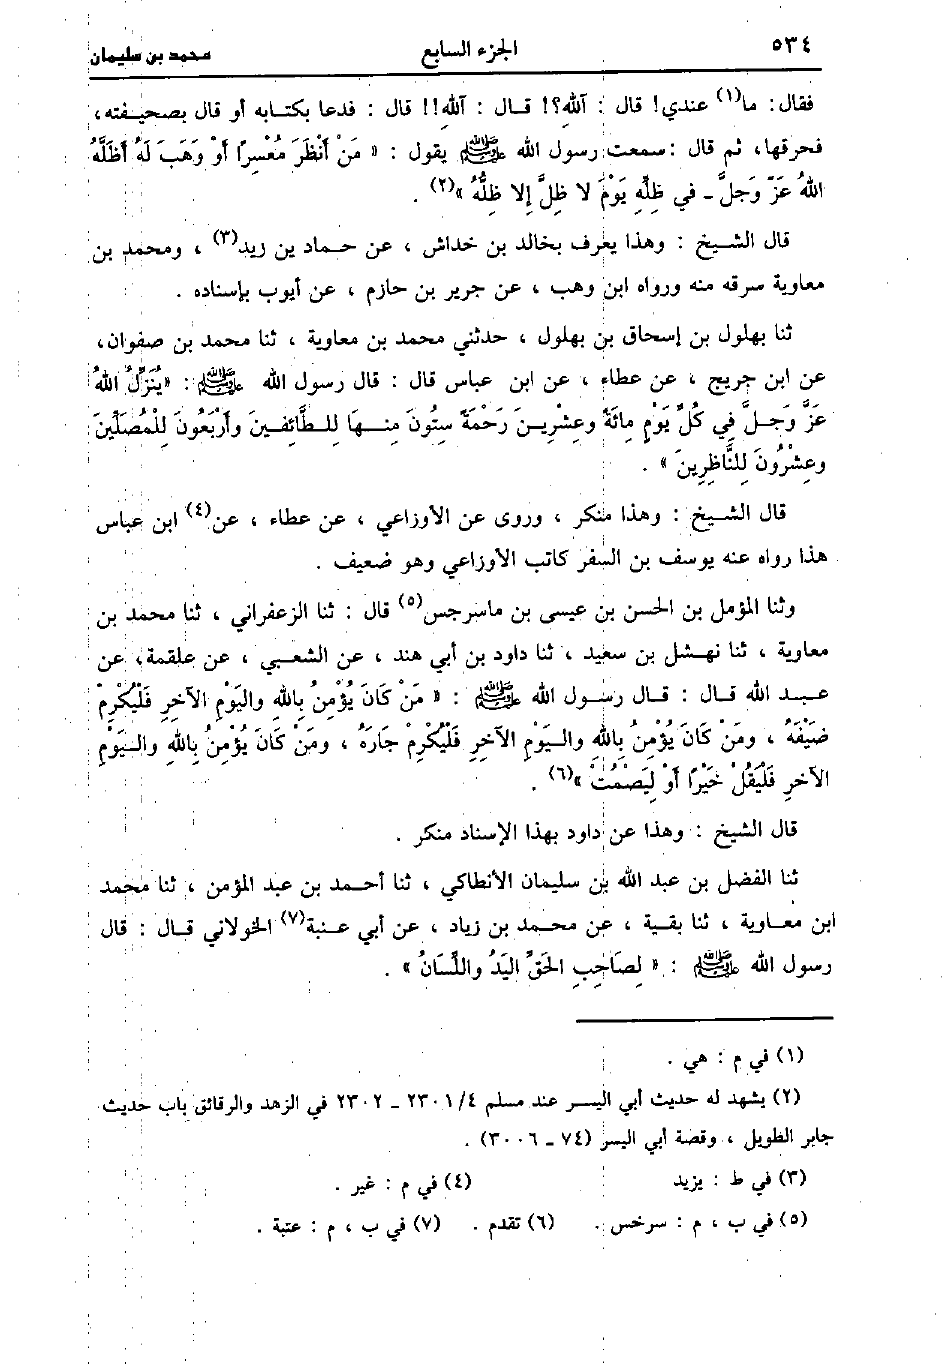 ٥٣٤ الجزء السابع محمد بن سليمان
فقال: ما(١) عندي! قال : آللهِ؟! قـال : آللهِ!! قال : فدعا بكتـابه أو قال بصحيـفته،
فحرقها، ثم قال : سمعت رسول الله ﷺ يقول : « مَنْ أَنْظَرَ مُعْسِرًا أَوْ وَهَبَ لَهُ أَظَلَّهُ
اللهُ عَزَّ وَجَلَّ ـ في ظِلِّهِ يَوْمَ لا ظِلَّ إِلا ظِلُّهُ »(٢) .
قال الشـيخ : وهذا يعرف بخالد بن خداش ، عن حـماد بن زيد(٣) ، ومحمد بن
معاوية سرقه منه ورواه ابن وهب ، عن جرير بن حازم ، عن أيوب بإسناده .
ثنا بهلول بن إسحاق بن بهلول ، حدثني محمد بن معاوية ، ثنا محمد بن صفوان،
عن ابن جريج ، عن عطاء ، عن ابن عباس قال : قال رسول الله ﷺ : «يُنَزِّلُ اللهُ
عَزَّ وَجَـلَّ فِي كُلِّ يَوْمٍ مِائَةً وعِشْرِيـنَ رَحْمَةً سِتُّونَ مِنـهَا لِلـطَّائِفـينَ وأَرْبَعُونَ لِلْمُصَلِّينَ
وعِشْرُونَ لِلنَّاظِرِينَ » .
قال الشـيخ : وهـذا منكر ، وروى عن الأوزاعي ، عن عطاء ، عن(٤) ابن عباس
هذا رواه عنه يوسف بن السفر كاتب الأوزاعي وهو ضعيف .
وثنا المؤمل بن الحسن بن عيسى بن ماسرجس(٥) قال : ثنا الزعفراني ، ثنا محمد بن
معاوية ، ثنا نهـشل بن سعيد ، ثنا داود بن أبي هند ، عن الشعـبي ، عن علقمة، عن
عـبـد الله قـال : قـال رسـول الله ﷺ : « مَنْ كَانَ يُؤْمِنُ بِاللهِ واليَوْمِ الآخِرِ فَلْيُكْرِمْ
ضَيْفَهُ ، ومَنْ كَانَ يُؤْمِنُ بِاللهِ والـيَوْمِ الآخِرِ فَلْيُكْرِمْ جَارَهُ ، ومَنْ كَانَ يُؤْمِنُ بِاللهِ والـيَوْمِ
الآخِرِ فَلْيَقُلْ خَيْرًا أَوْ لِيَصْمُتْ »(٦) .
قال الشيخ : وهذا عن داود بهذا الإسناد منكر .
ثنا الفضل بن عبد الله بن سليمان الأنطاكي ، ثنا أحـمد بن عبد المؤمن ، ثنا محمد
ابن معـاوية ، ثنا بقـية ، عن محـمد بن زياد ، عن أبي عـنبة(٧) الخولاني قـال : قال
رسول الله ﷺ : « لِصَاحِبِ الحَقِّ اليَدُ واللِّسَانُ » .
(١) في م : هي .
(٢) يشهد له حديث أبي اليـسر عند مسلم ٢٣٠١/٤ ـ ٢٣٠٢ في الزهد والرقائق باب حديث
جابر الطويل ، وقصة أبي اليسر (٧٤ ـ ٣٠٠٦) .
(٣) في ط : يزيد (٤) في م : غير .
(٥) في ب ، م : سرخس . (٦) تقدم . (٧) في ب ، م : عتبة .